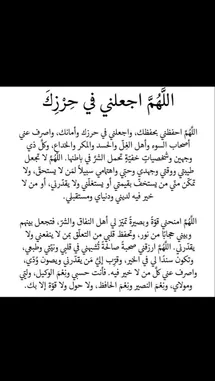 اللَّهُمَّ اجعلني في حِرْزِكَ
اللَّهُمَّ احفظني بحفظك، واجعلني في حرزك وأمانك، واصرف عني
أصحاب السوء وأهل الغِلّ والحسد والمكر والخداع، وكلّ ذي
وجهين وشخصياتٍ خفيّة تحمل الشرّ في باطنها. اللَّهُمَّ لا تجعل
طيبتي ووقتي وجهدي وحبّي واهتمامي سبيلًا لمن لا يستحق، ولا
تمكّن منّي من يستخفّ بقيمتي أو يستغلّني ولا يقدّرني، أو من لا
خير فيه لديني ودنياي ومستقبلي.
اللَّهُمَّ امنحني قوّةً وبصيرةً تميّز لي أهل النفاق والشرّ، فتجعل بينهم
وبيني حجابًا من نور، وتحفظ قلبي من التعلّق بمن لا ينفعني ولا
يقدّرني. اللَّهُمَّ ارزقني صحبةً صالحةً تُشبهني في قلبي ونيّتي وطبعي،
وتكون سندًا لي في الخير، وقرّب إليّ من يقدّرني ويصون وُدّي،
واصرف عني كلّ من لا خير فيه. فأنت حسبي ونِعْمَ الوكيل، وليّي
ومولاي، ونَعْمَ النصير ونِعْمَ الحافظ، ولا حول ولا قوّة إلا بك.